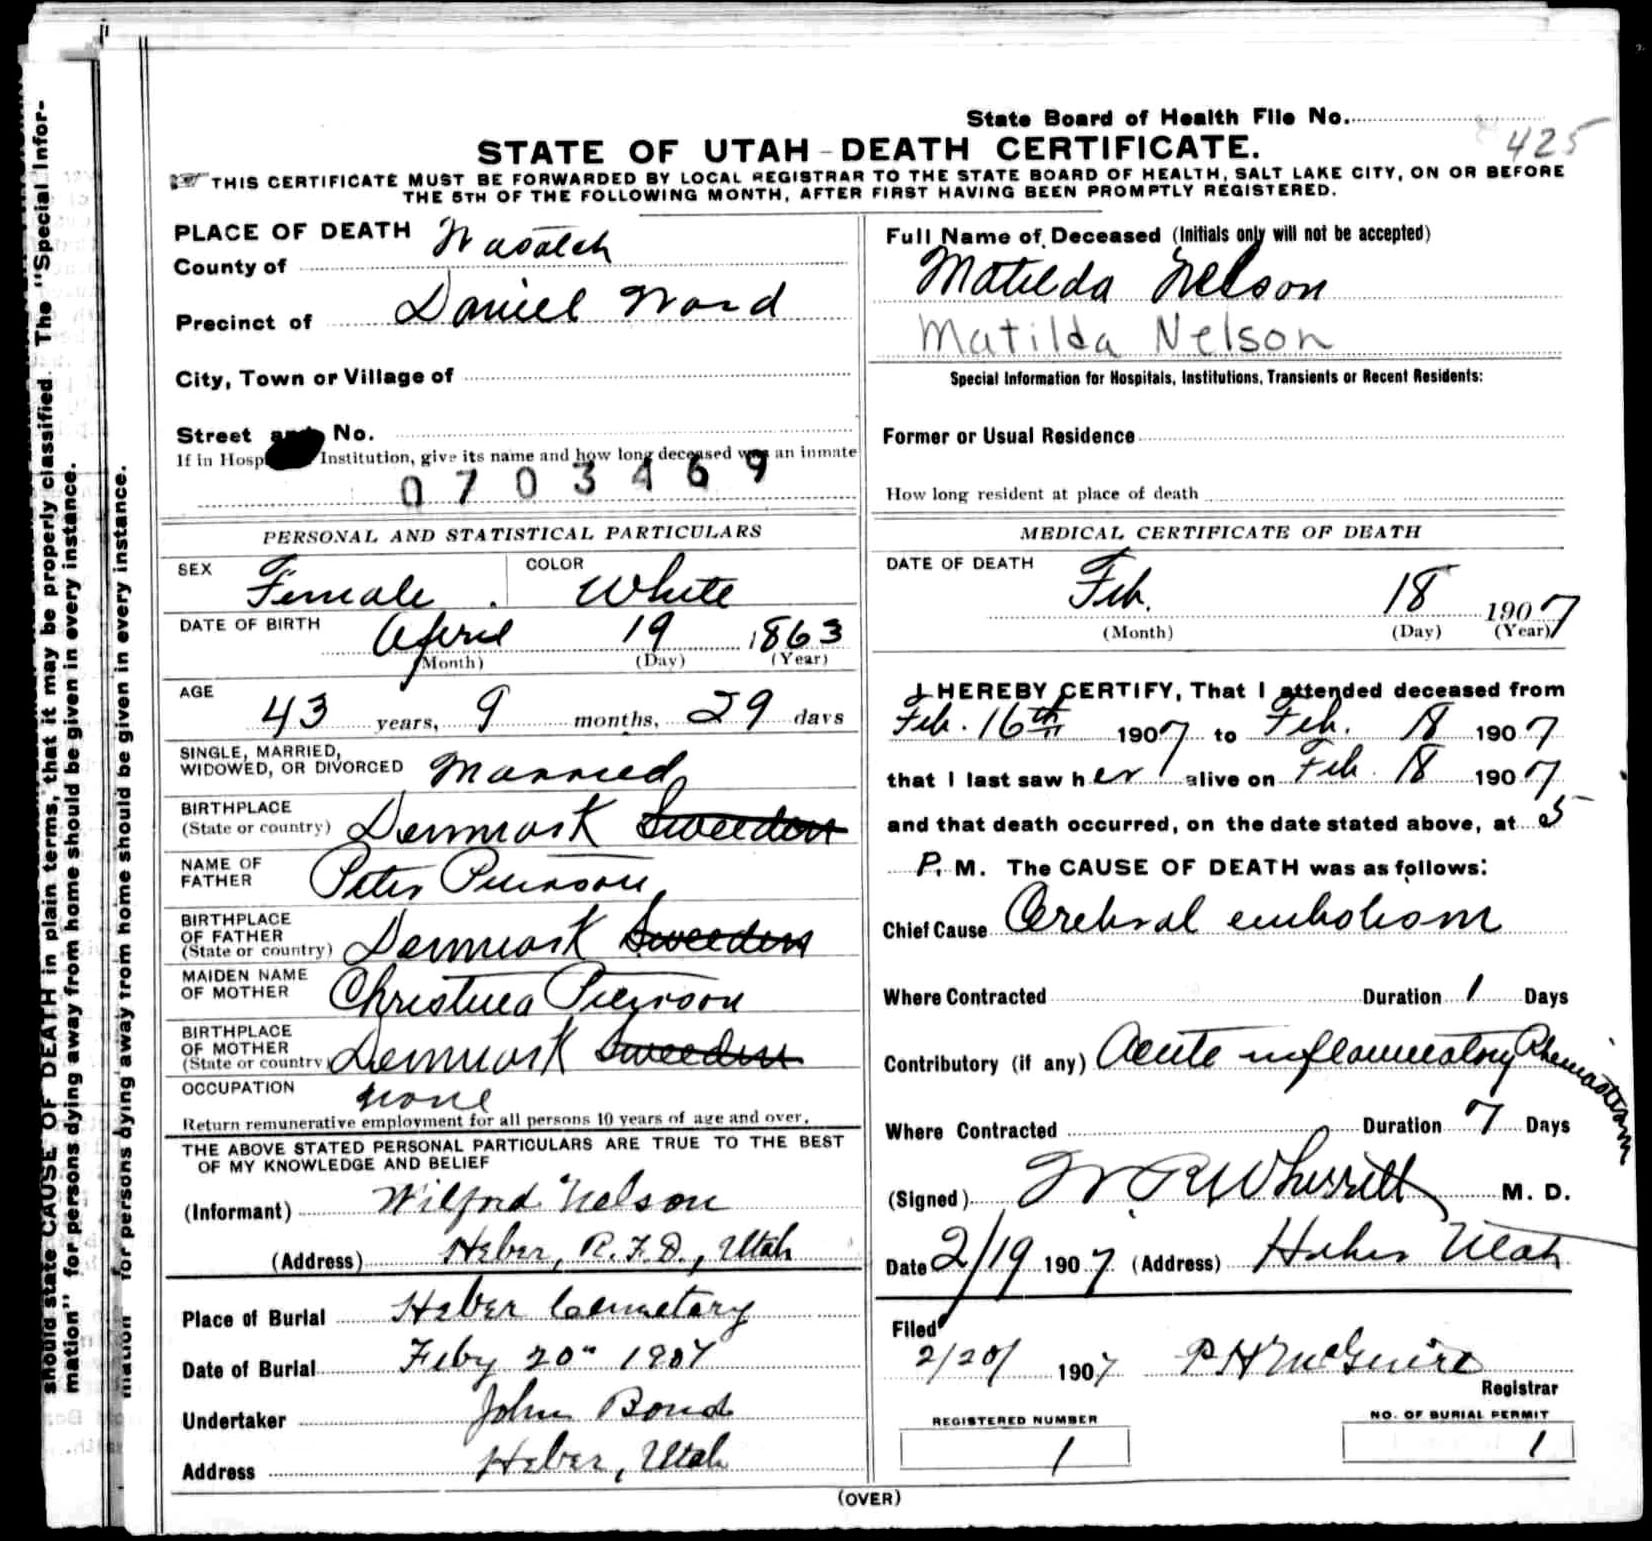 should state CAUSE OF DEATH in plain terms, that it may be properly classified. The "Special Infor-
mation" for persons dying away from home should be given in every instance.
mation for persons dying away from home should be given in every instance.
State Board of Health File No.
425
STATE OF UTAH - DEATH CERTIFICATE.
THIS CERTIFICATE MUST BE FORWARDED BY LOCAL REGISTRAR TO THE STATE BOARD OF HEALTH, SALT LAKE CITY, ON OR BEFORE
THE 5TH OF THE FOLLOWING MONTH, AFTER FIRST HAVING BEEN PROMPTLY REGISTERED.
PLACE OF DEATH
County of Wasatch
Precinct of Daniel Ward
City, Town or Village of
Street and No.
If in Hosp Institution, give its name and how long deceased was an inmate
0703469
PERSONAL AND STATISTICAL PARTICULARS
SEX Female COLOR White
DATE OF BIRTH April 19 1863
(Month) (Day) (Year)
AGE 43 years, 9 months, 29 days
SINGLE, MARRIED,
WIDOWED, OR DIVORCED Married
BIRTHPLACE
(State or country) Denmark Sweeden
NAME OF
FATHER Peter Peirson
BIRTHPLACE
OF FATHER
(State or country) Denmark Sweeden
MAIDEN NAME
OF MOTHER Christina Peirson
BIRTHPLACE
OF MOTHER
(State or country) Denmark Sweeden
OCCUPATION none
Return remunerative employment for all persons 10 years of age and over.
THE ABOVE STATED PERSONAL PARTICULARS ARE TRUE TO THE BEST
OF MY KNOWLEDGE AND BELIEF
(Informant) Wilford Nelson
(Address) Heber, R.F.D., Utah
Place of Burial Heber Cemetary
Date of Burial Feby 20" 1907
Undertaker John Bond
Address Heber, Utah
Full Name of Deceased (Initials only will not be accepted)
Matilda Nelson
Matilda Nelson
Special Information for Hospitals, Institutions, Transients or Recent Residents:
Former or Usual Residence
How long resident at place of death
MEDICAL CERTIFICATE OF DEATH
DATE OF DEATH
Feb. 18 1907
(Month) (Day) (Year)
I HEREBY CERTIFY, That I attended deceased from
Feb. 16th 1907 to Feb. 18 1907
that I last saw her alive on Feb. 18 1907
and that death occurred, on the date stated above, at 5
P. M. The CAUSE OF DEATH was as follows:
Chief Cause Cerebral embolism
Where Contracted Duration 1 Days
Contributory (if any) Acute inflammatory Rheumatism
Where Contracted Duration 7 Days
(Signed) W. R. Wherritt M. D.
Date 2/19 1907 (Address) Heber Utah
Filed
2/20/ 1907 P H McGuire
Registrar
REGISTERED NUMBER
1
NO. OF BURIAL PERMIT
1
(OVER)